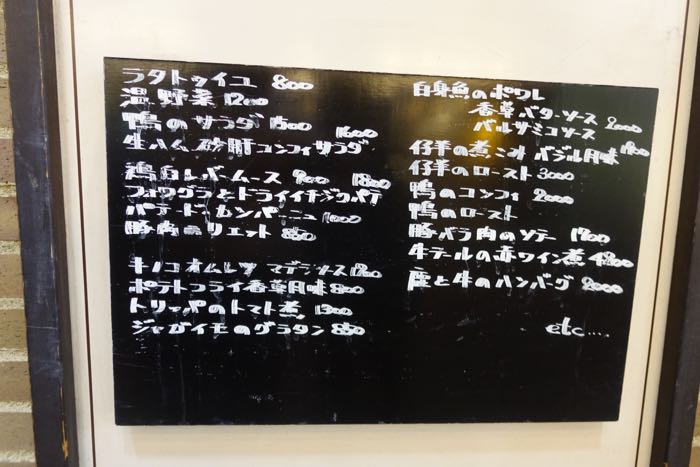 ラタトゥイユ 800
温野菜 1200
鴨のサラダ 1500
1600
生ハム 砂肝コンフィサラダ
鶏白レバームース 900 1800
フォワグラとドライイチジクパテ
パテ・ド・カンパーニュ 1000
豚肉のリエット 850
キノコオムレツ マデラソース
ポテトフライ香草風味 800
トリッパのトマト煮 1300
ジャガイモのグラタン 850
白身魚のポワレ
香草バターソース 2000
バルサミコソース
仔羊の煮こみ バジル風味
仔羊のロースト 3000
鴨のコンフィ 2000
鴨のロースト
豚バラ肉のソテー 1700
牛テールの赤ワイン煮
鹿と牛のハンバーグ 2000
etc....